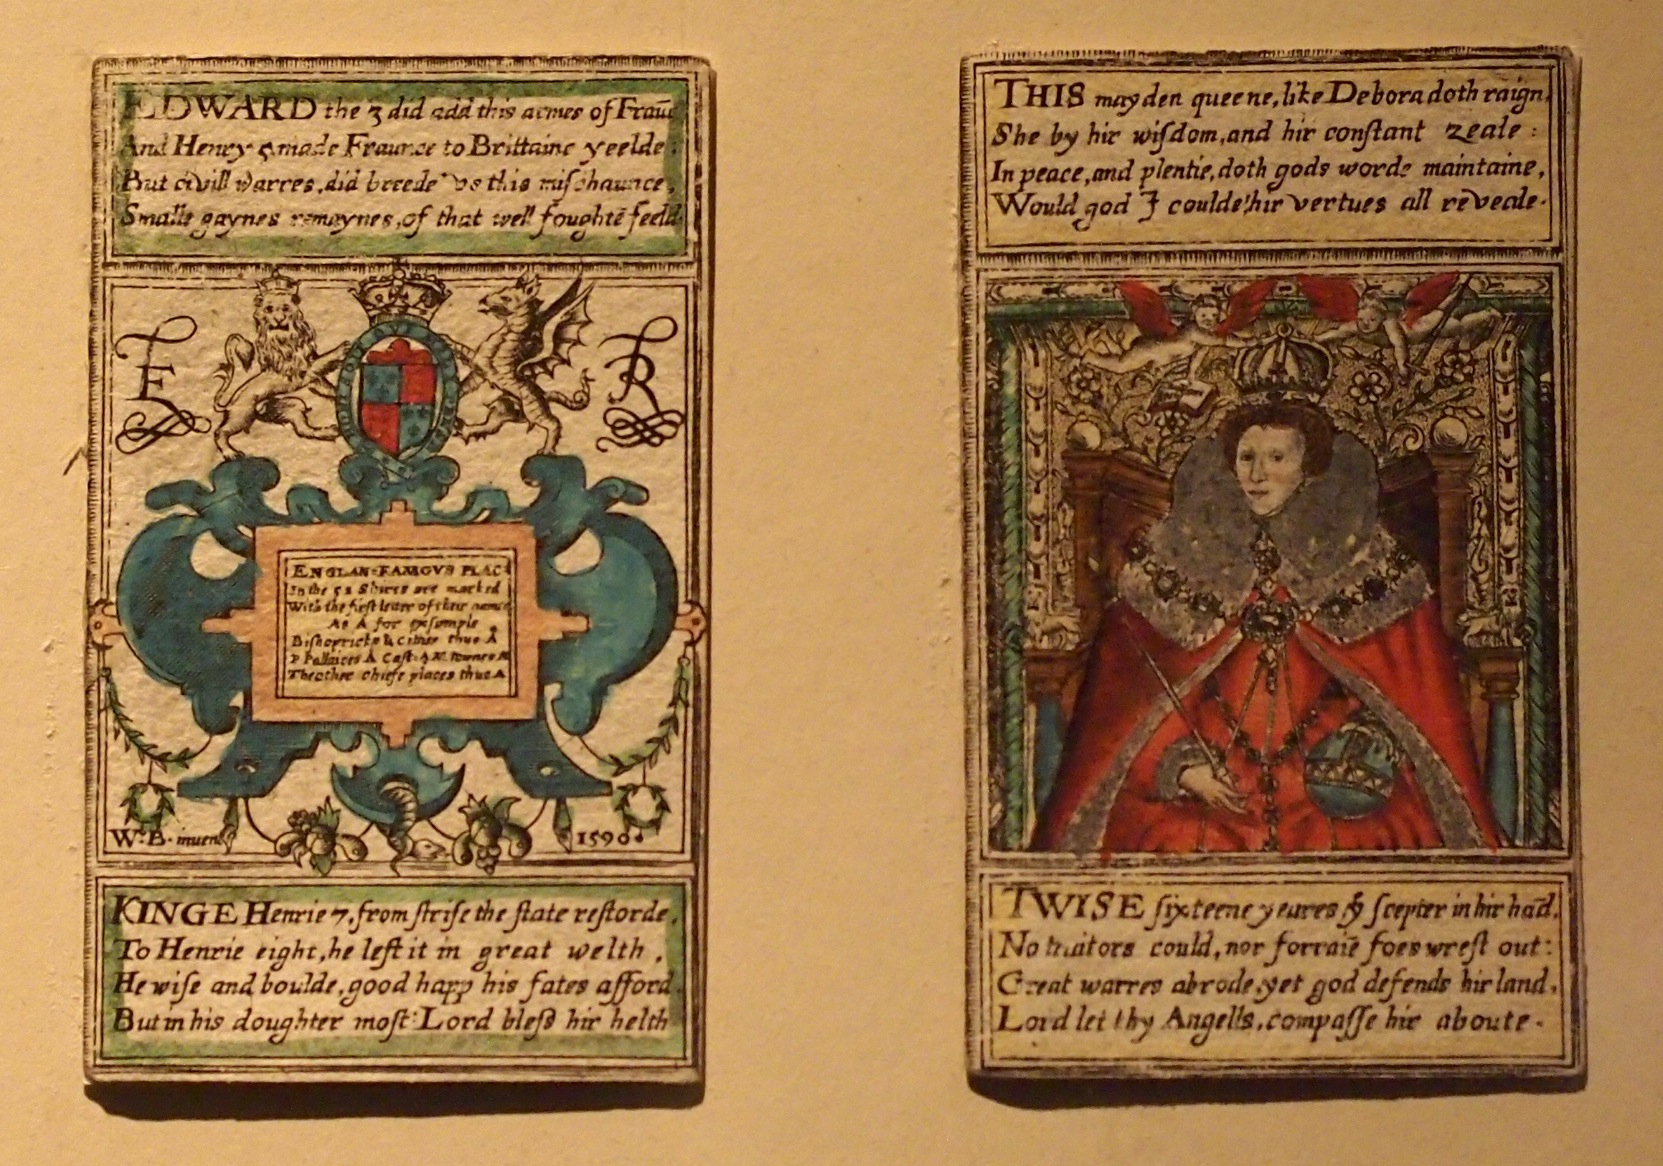 EDWARD the 3 did add this armes of Frau̅c
And Henry 5 made Fraunce to Brittaine yeelde:
But civill warres, did breede us this mischaunce,
Smalle gaynes remaynes, of that well foughte̅ feeld
E R
ENGLAN FAMOVS PLAC
In the 52 Shires are marked
With the first letter of their name
As A for exsample
Bishopricks & cities thus A
P Pallaices A Cast: A M townes
The other chiefe places thus A
W. B. invent 1590.
KINGE Henrie 7, from strife the state restorde,
To Henrie eight, he left it in great welth,
He wise and boulde, good happ his fates afford.
But in his doughter most: Lord bless hir helth
THIS mayden queene, like Debora doth raign,
She by hir wisdom, and hir constant zeale:
In peace, and plentie, doth gods worde maintaine,
Would god I coulde hir vertues all reveale.
TWISE sixteene yeares ye scepter in hir ha̅d,
No traitors could, nor forraie̅ foes wrest out:
Great warres abrode, yet god defends hir land,
Lord let thy Angells, compasse hir aboute.